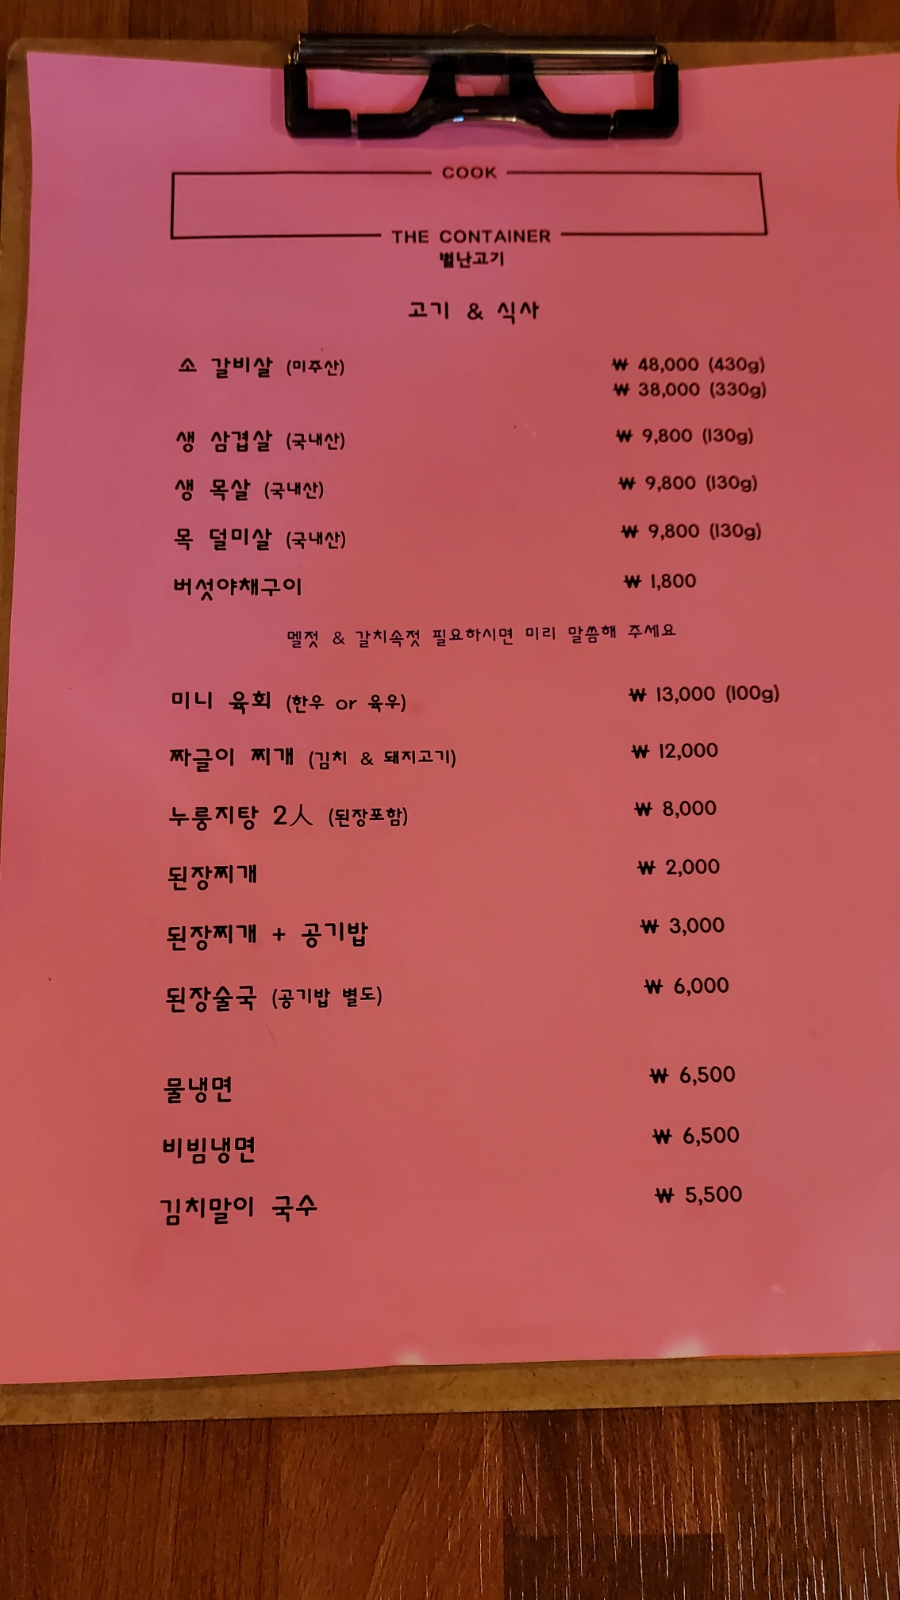 COOK
THE CONTAINER
별난고기
고기 & 식사
소 갈비살 (미주산) ₩ 48,000 (430g)
₩ 38,000 (330g)
생 삼겹살 (국내산) ₩ 9,800 (130g)
생 목살 (국내산) ₩ 9,800 (130g)
목 덜미살 (국내산) ₩ 9,800 (130g)
버섯야채구이 ₩ 1,800
멜젓 & 갈치속젓 필요하시면 미리 말씀해 주세요
미니 육회 (한우 or 육우) ₩ 13,000 (100g)
짜글이 찌개 (김치 & 돼지고기) ₩ 12,000
누룽지탕 2人 (된장포함) ₩ 8,000
된장찌개 ₩ 2,000
된장찌개 + 공기밥 ₩ 3,000
된장술국 (공기밥 별도) ₩ 6,000
물냉면 ₩ 6,500
비빔냉면 ₩ 6,500
김치말이 국수 ₩ 5,500